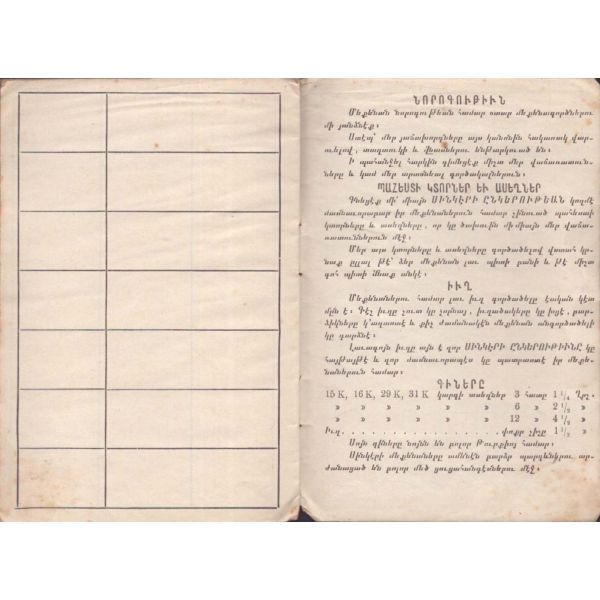 ՆՈՐՈԳՈՒԹԻՒՆ
Մեքենան նորոգութեան համար օտար մեքենագործներու
մի յանձնէք։
Ստէպ՝ մեր յաճախորդները այս կանոնին հակառակ վար-
ուելով, տաղտուկի և վնասներու ենթարկուած են։
Ի պահանջել հարկին դիմեցէք միշտ մեր վաճառատուն-
ները և կամ մեր արտօնեալ գործակալներուն։
ՊԱՀԵՍՏԻ ԿՏՈՐՆԵՐ ԵՒ ԱՍԵՂՆԵՐ
Գնեցէք մի միայն ՍԻՆԿԵՐԻ ԸՆԿԵՐՈՒԹԵԱՆ կողմէ
մասնաւորաբար իր մեքենաներուն համար շինուած պահեստի
կտորները և ասեղները, որ կը ծախուին մի միայն մեր վաճա-
ռատուններուն մէջ։
Մեր այս կտորները և ասեղները գործածելով վստահ կր-
նաք ըլլալ թէ՝ ձեր մեքենան լաւ պիտի բանի և թէ միշտ
գոհ պիտի մնաք անկէ։
ԻՒՂ
Մեքենաներու համար լաւ իւղ գործածելը էական կէտ
մըն է։ Գէշ իւղը շուտ կը չորնայ, իւղածակերը կը խցէ, բար-
ձիկները կ՚աղտոտէ և քիչ ժամանակէն մեքենան անգործածելի
կը դարձնէ։
Լաւագոյն իւղը այն է զոր ՍԻՆԿԵՐԻ ԸՆԿԵՐՈՒԹԻՒՆԸ կը
հայթայթէ և զոր մասնաւորապէս կը պատրաստէ իր մեքե-
նաներուն համար։
ԳԻՆԵՐԸ
15 K, 16 K, 29 K, 31 K կարգի ասեղներ 3 հատը 1 1/4 Ղրշ.
» » » » » » 6 » 2 1/2 »
» » » » » » 12 » 4 1/2 »
Իւղ. . . . . . . . . . . . . . . . . փոքր շիշը 1 1/2 »
Սոյն գիները նոյնն են բոլոր Թուրքիոյ համար։
Սինկէրի մեքենաները ամենէն բարձր պարգևներու ար-
ժանացած են բոլոր մեծ ցուցահանդէսներու մէջ։